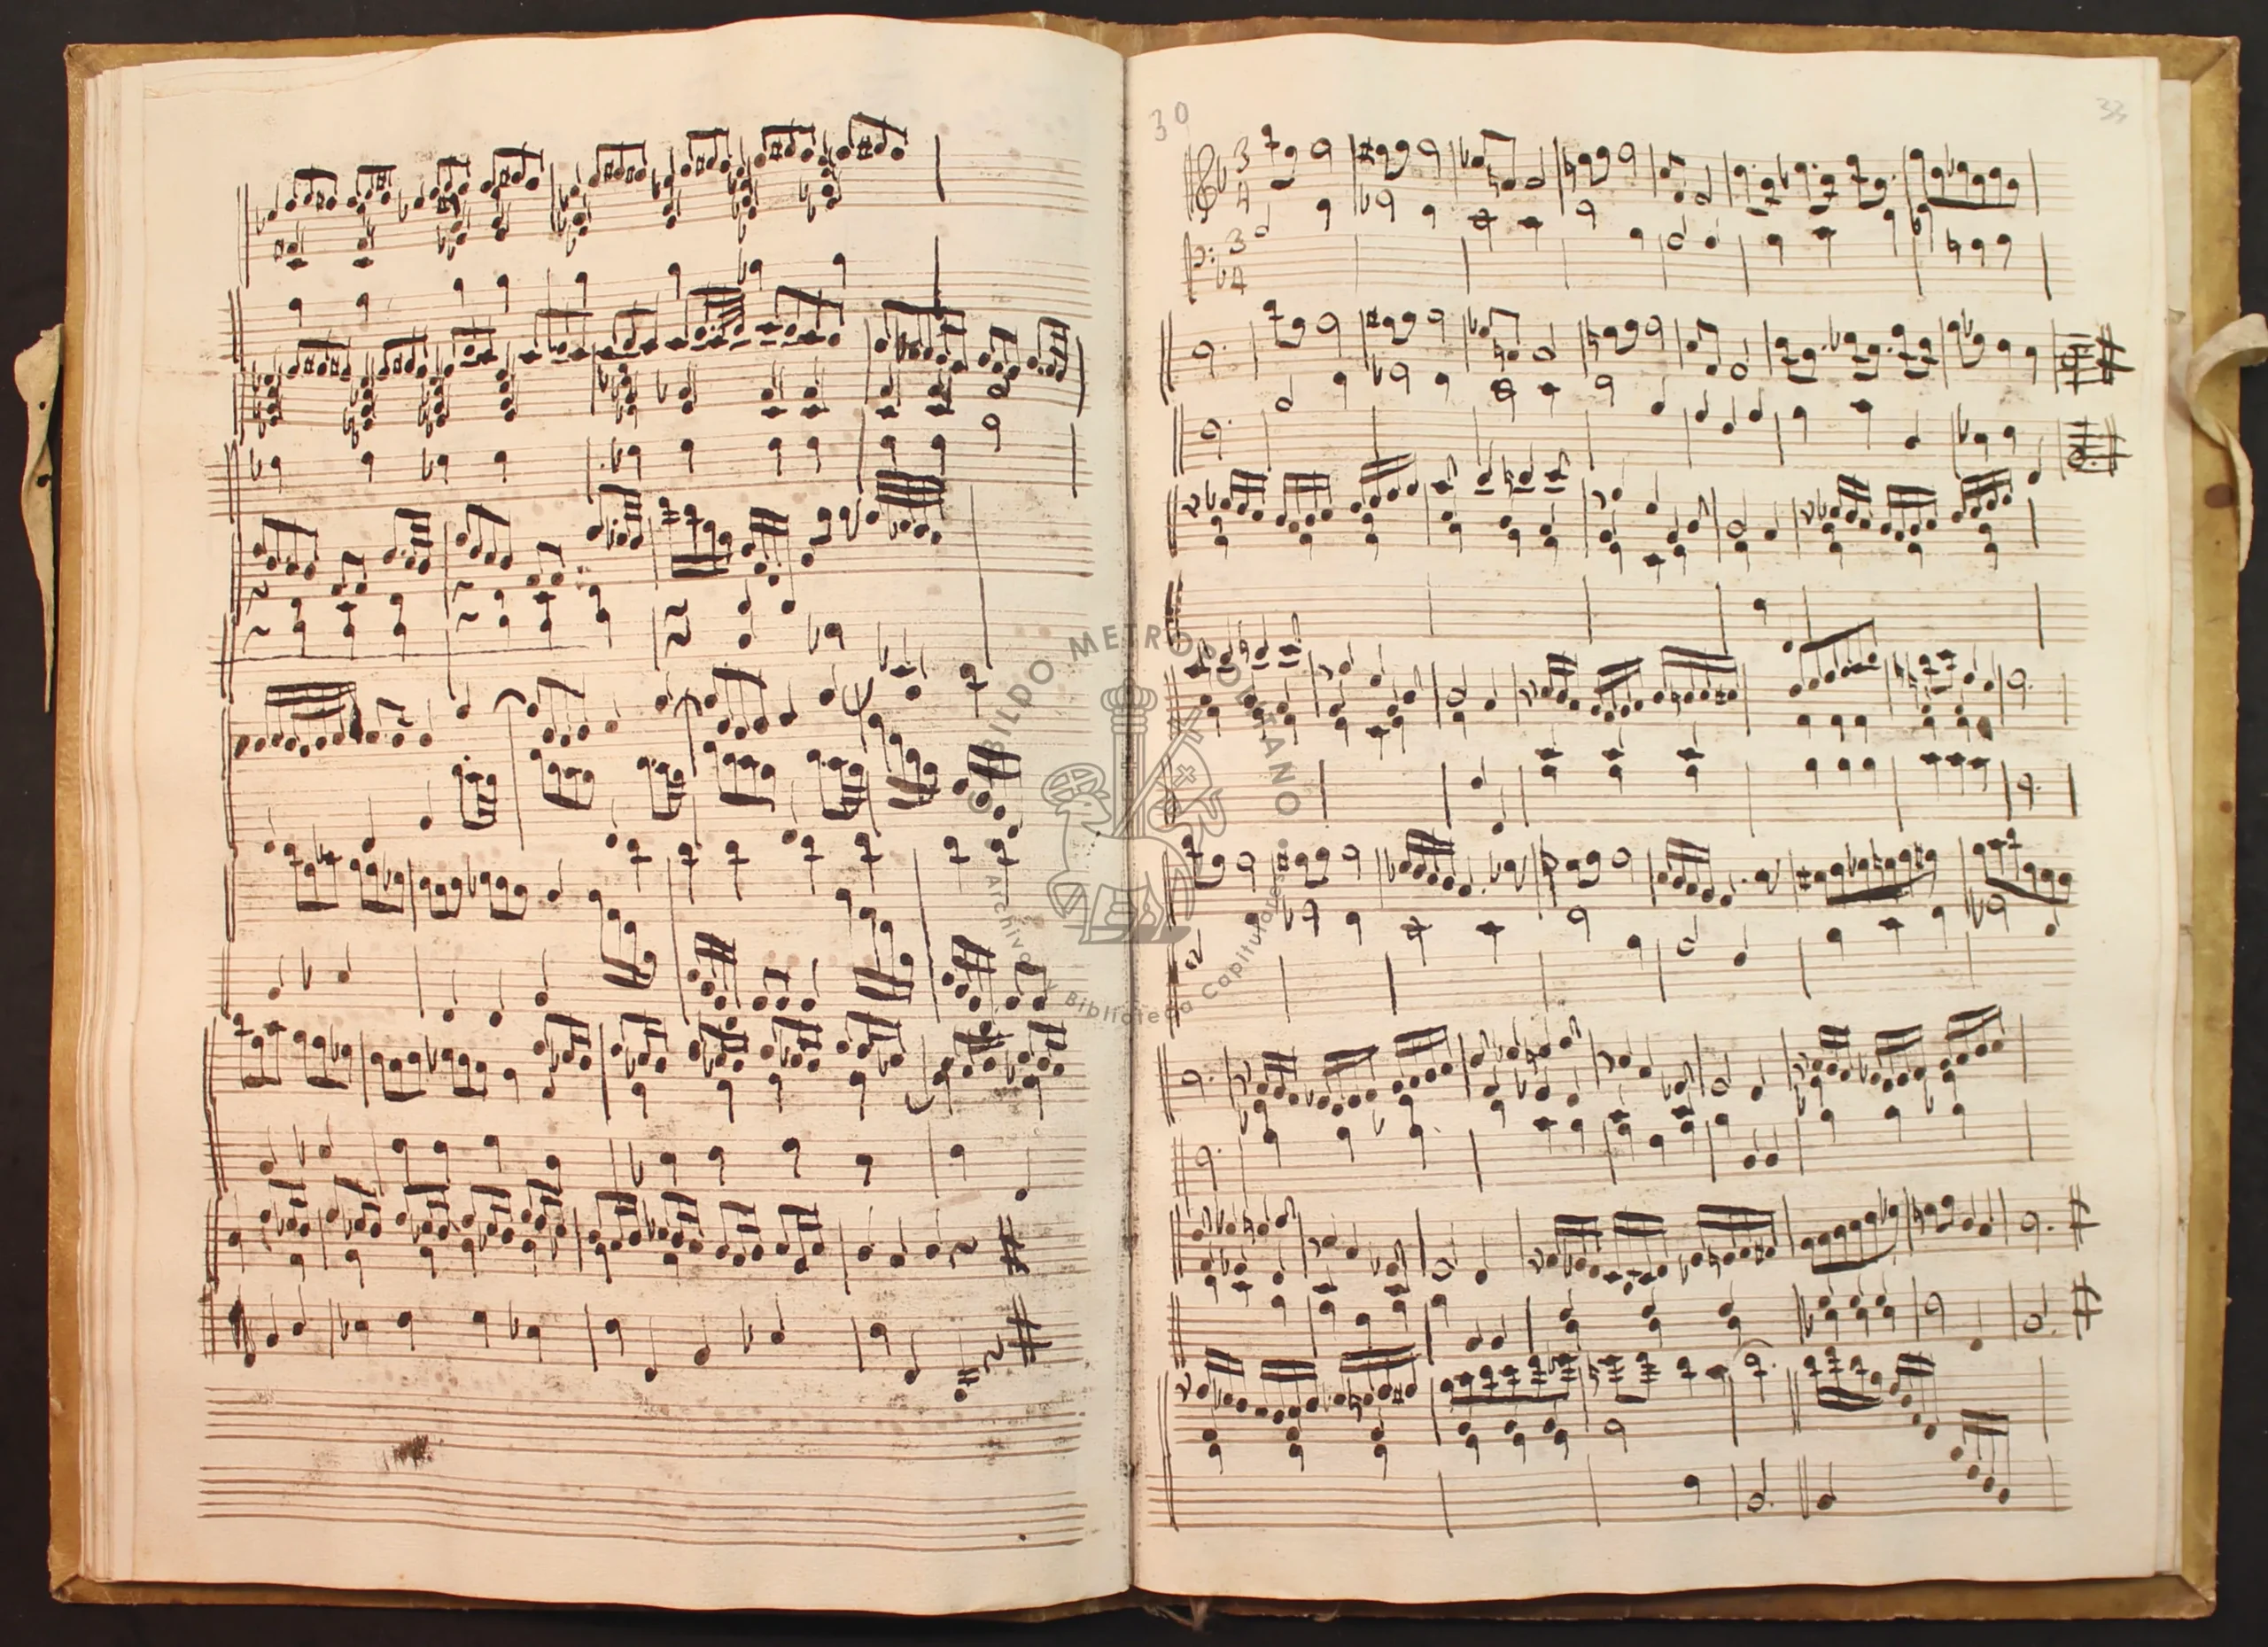 30
3
4
3
4
CABILDO METROPOLITANO
Archivo y Biblioteca Capitulares